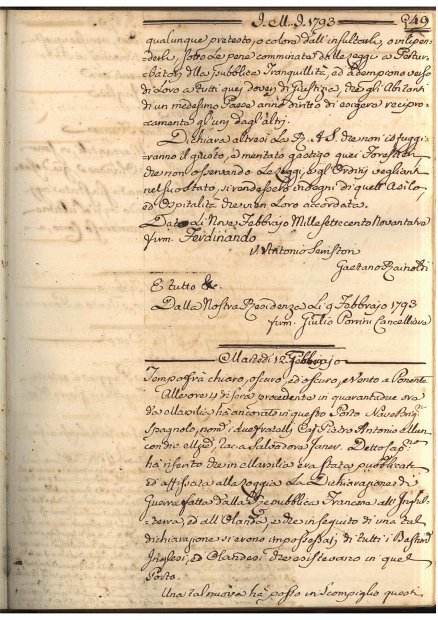 I. M. I. 1793 49
qualunque pretesto, o colore dall'insultarli, o vilipen-
derli, sotto le pene comminate dalle Leggi a' Pertur-
batori della pubblica Tranquillità, ed ad empiano verso
di Loro a tutti quei doveri di Giustizia, che gli Abitanti
di un medesimo Paese anno diritto di esigere recipro-
camente gl'uni dagl'altri.
Dichiara altresì La R. A. S. che non isfuggi-
ranno il giusto, e meritato gastigo quei Forestieri
che non osservando Le Leggi, e gl'Ordini veglianti
nel suo Stato, si rendessero indegni di quell'Asilo,
ed Ospitalità che vien Loro accordata.
Dato Li Nove Febbrajo Millesettecento Novantatre
firm. Ferdinando
V. Antonio Serristori
Gaetano Rainoldi
E tutto &c.
Dalla Nostra Residenza Li 9 Febbrajo 1793
firm. Giulio Porrini Cancelliere
Martedi 12 Febbrajo
Tempo frà chiaro, oscuro, ed oscuro, e Vento a Ponente
Alle ore di sera procedente in quarantadue ore
da Marsilia hà ancorato in questo Porto Nave
Spagnolo, Pietro Antonio
Salvadora Detto Cap.no
hà riferito che in Marsilia era stata pubblicata
ed affissata alla Loggia La Dichiarazione di
Guerra fatta dalla Repubblica Francese all'Inghil-
terra, ed all'Olanda, e che in seguito di una tal
dichiarazione vi erono impossessati di tutti i Bastim.ti
Inglesi, ed Olandesi che esistevano in quel
Porto.
Una tal nuova hà posto in scompiglio questi